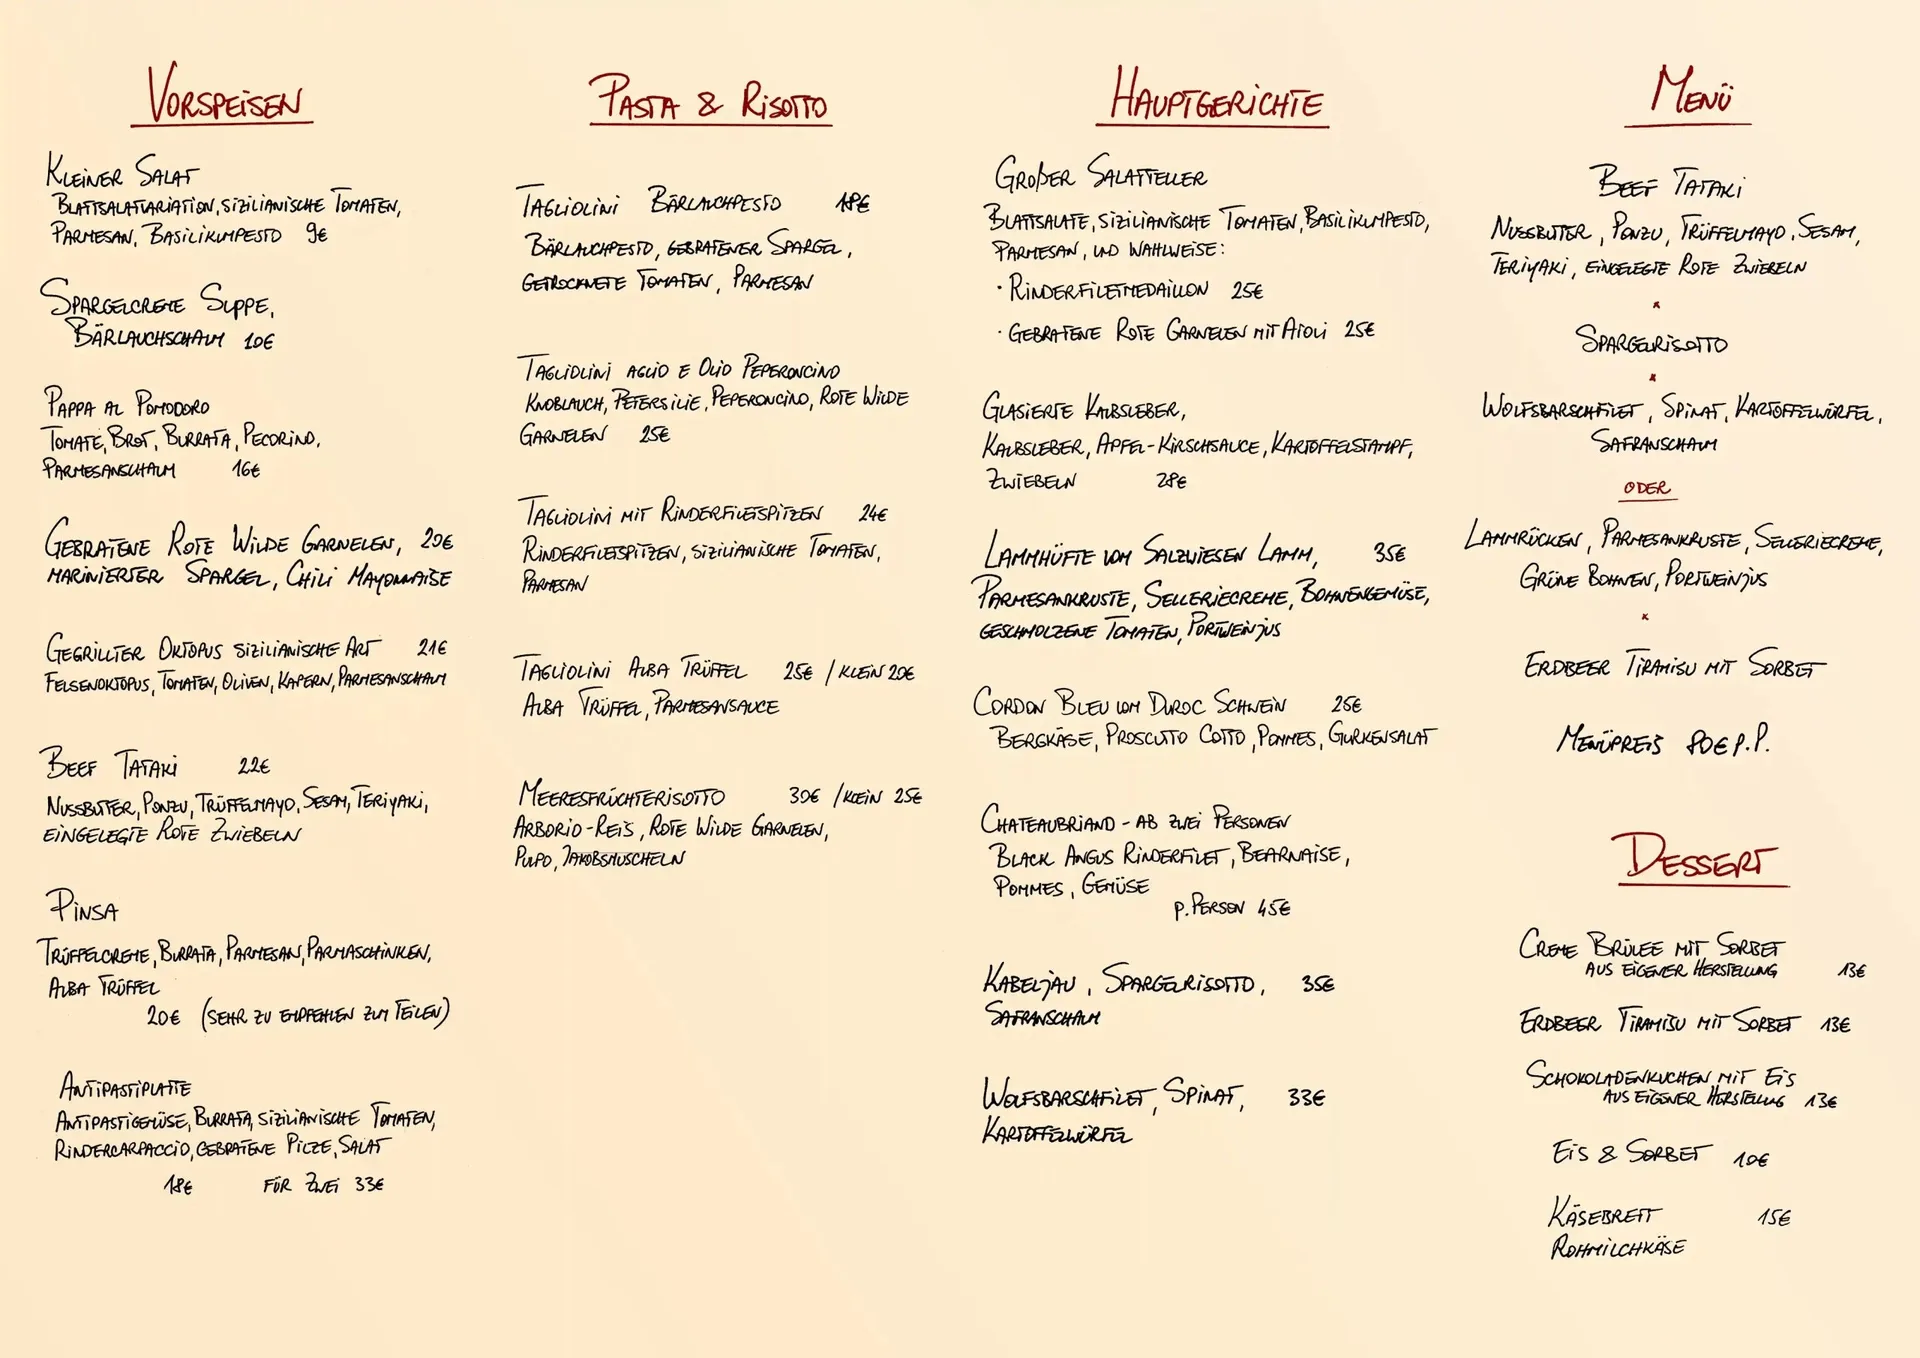 Vorspeisen
Kleiner Salat
Blattsalatvariation, sizilianische Tomaten,
Parmesan, Basilikumpesto 9€
Spargelcreme Suppe,
Bärlauchschaum 10€
Pappa al Pomodoro
Tomate, Brot, Burrata, Pecorino,
Parmesanschaum 16€
Gebratene Rote Wilde Garnelen, 20€
marinierter Spargel, Chili Mayonnaise
Gegrillter Oktopus sizilianische Art 21€
Felsenoktopus, Tomaten, Oliven, Kapern, Parmesanschaum
Beef Tataki 22€
Nussbutter, Ponzu, Trüffelmayo, Sesam, Teriyaki,
eingelegte Rote Zwiebeln
Pinsa
Trüffelcreme, Burrata, Parmesan, Parmaschinken,
Alba Trüffel
20€ (sehr zu empfehlen zum Teilen)
Antipastiplatte
Antipastigemüse, Burrata, sizilianische Tomaten,
Rindercarpaccio, gebratene Pilze, Salat
18€ für Zwei 33€
Pasta & Risotto
Tagliolini Bärlauchpesto 18€
Bärlauchpesto, gebratener Spargel,
getrocknete Tomaten, Parmesan
Tagliolini aglio e Olio Peperoncino
Knoblauch, Petersilie, Peperoncino, Rote Wilde
Garnelen 25€
Tagliolini mit Rinderfiletspitzen 24€
Rinderfiletspitzen, sizilianische Tomaten,
Parmesan
Tagliolini Alba Trüffel 25€ / klein 20€
Alba Trüffel, Parmesansauce
Meeresfrüchterisotto 30€ / klein 25€
Arborio-Reis, Rote Wilde Garnelen,
Pulpo, Jakobsmuscheln
Hauptgerichte
Großer Salatteller
Blattsalate, sizilianische Tomaten, Basilikumpesto,
Parmesan, und wahlweise:
· Rinderfiletmedaillon 25€
· gebratene Rote Garnelen mit Aioli 25€
Glasierte Kalbsleber,
Kalbsleber, Apfel-Kirschsauce, Kartoffelstampf,
Zwiebeln 28€
Lammhüfte vom Salzwiesen Lamm, 35€
Parmesankruste, Selleriecreme, Bohnengemüse,
geschmolzene Tomaten, Portweinjus
Cordon Bleu vom Duroc Schwein 25€
Bergkäse, Proscutto Cotto, Pommes, Gurkensalat
Chateaubriand - ab zwei Personen
Black Angus Rinderfilet, Bearnaise,
Pommes, Gemüse
p. Person 45€
Kabeljau, Spargelrisotto, 35€
Safranschaum
Wolfsbarschfilet, Spinat, 33€
Kartoffelwürfel
Menü
Beef Tataki
Nussbutter, Ponzu, Trüffelmayo, Sesam,
Teriyaki, eingelegte Rote Zwiebeln
x
Spargelrisotto
x
Wolfsbarschfilet, Spinat, Kartoffelwürfel,
Safranschaum
oder
Lammrücken, Parmesankruste, Selleriecreme,
Grüne Bohnen, Portweinjus
x
Erdbeer Tiramisu mit Sorbet
Menüpreis 80€ p.P.
Dessert
Creme Brûlee mit Sorbet
aus eigener Herstellung 13€
Erdbeer Tiramisu mit Sorbet 13€
Schokoladenkuchen mit Eis
aus eigener Herstellung 13€
Eis & Sorbet 10€
Käsebrett 15€
Rohmilchkäse